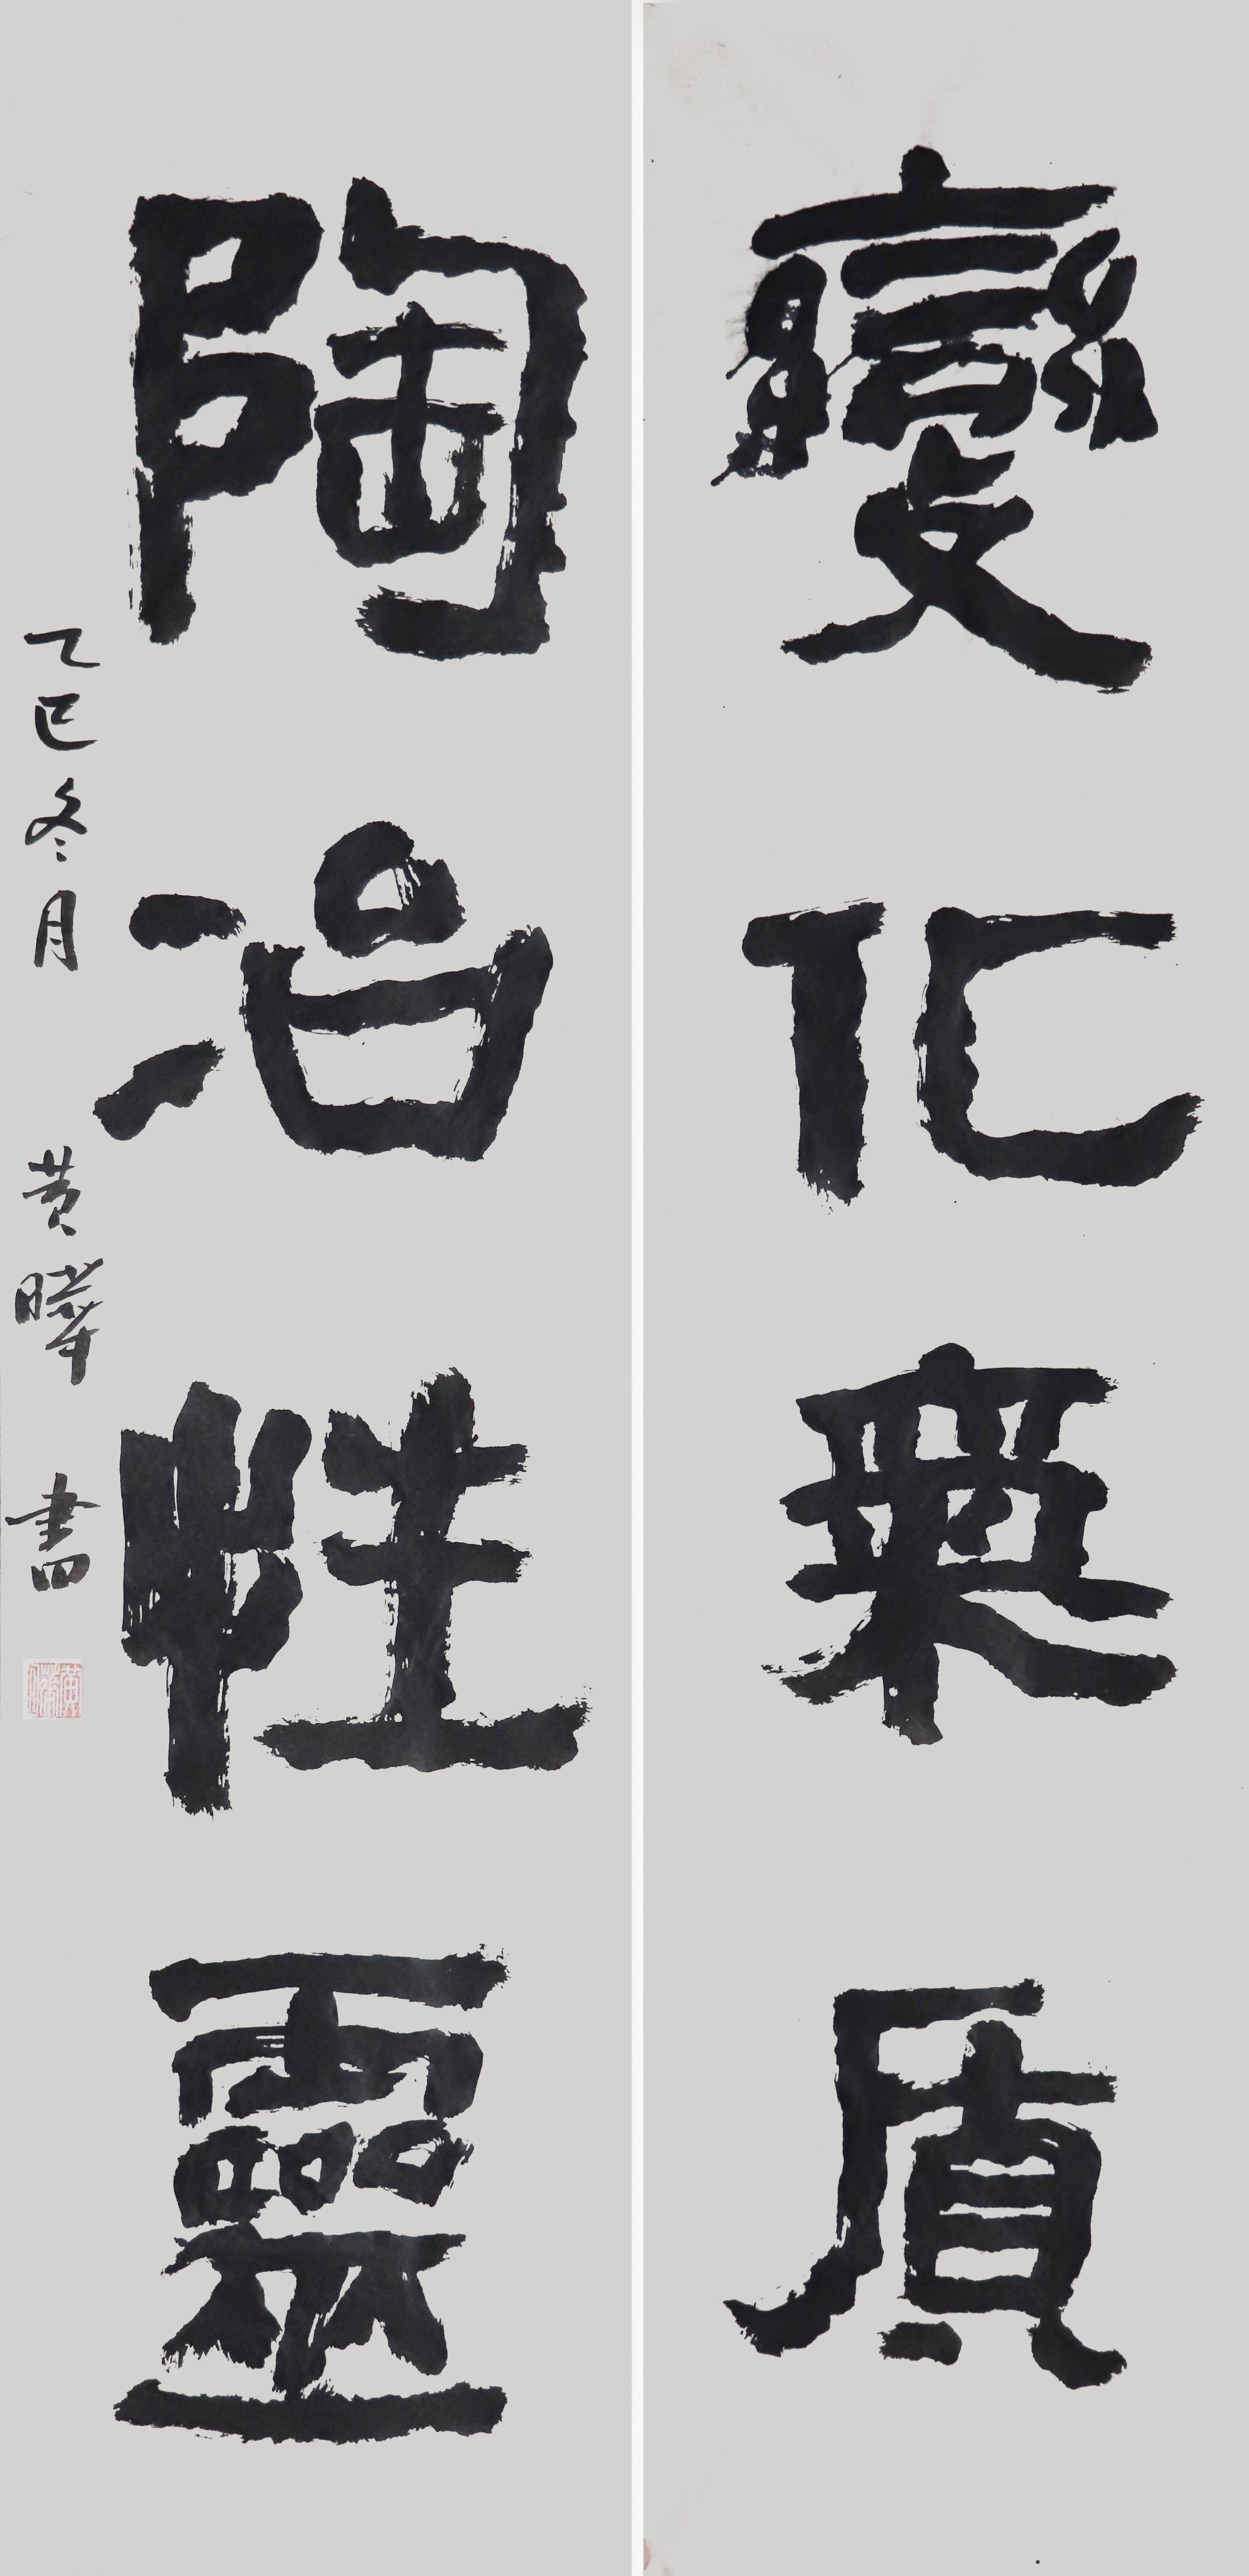 變化氣质
陶冶性靈
乙巳冬月 黄曄 書